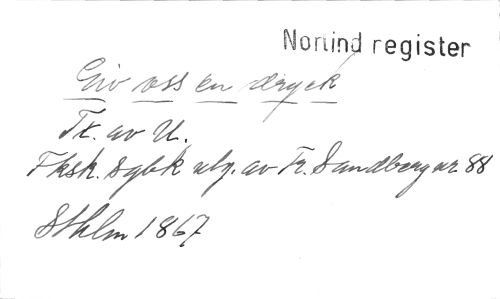 Norlind register
Giv oss en dryck
Tx. av U.
Fksk. Sgbk utg. av Fr. Sandberg nr. 88
Sthlm 1867